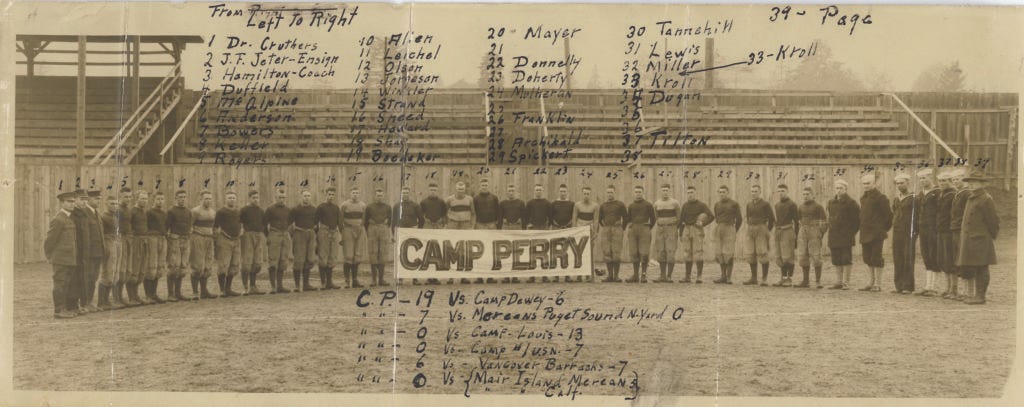 From Left To Right
39 - Page
1 Dr. Cruthers
2 J.F. Jeter-Ensign
3 Hamilton-Coach
4 Duffield
5 McAlpine
6 Anderson
7 Bowers
8 Keller
9 Rogers
10 Allen
11 Leichel
12 Olson
13 Jorgeson
14 Winkler
15 Strand
16 Sneed
17 Howard
18 Shay
19 Boedeker
20 Mayer
21
22 Donnelly
23 Doherty
24 Mutheran
25
26 Franklin
27
28 Archibald
29 Spickert
30 Tannehill
31 Lewis
32 Miller
33 Kroll
33-Kroll
34 Dugan
35
36
37 Tilton
38
1 2 3 4 5 6 7 8 9 10 11 12 13 14 15 16 17 18 19 20 21 22 23 24 25 26 27 28 29 30 31 32 33 34 35 36 37 38 39
CAMP PERRY
C.P. - 19 Vs. Camp Dewey - 6
" " - 7 Vs. Mereans Puget Sound N-Yard 0
" " - 0 Vs Camp - Louis - 13
" " - 0 Vs - Camp #1 USN. - 7
" " - 6 Vs - Vancover Barracks - 7
" " - 0 Vs - { Mair Island Mereans
" " Calf. }